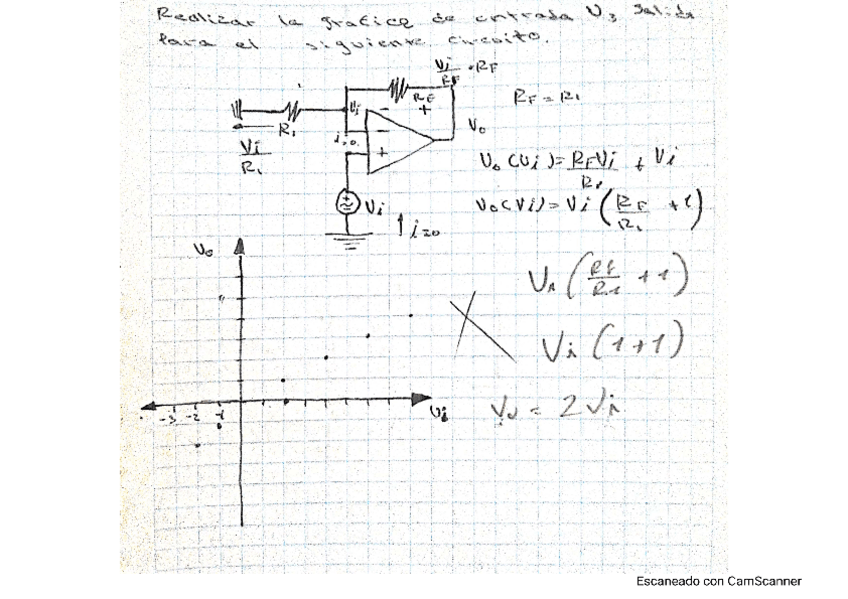 Realizar la grafica de entrada Vs Salida
para el siguiente circuito.
Vi/RF · RF
RF
+
RF = R1
Vi
-
R1
i=0
-
+
Vo
Vi/R1
Vo (Vi) = RF Vi/R1 + Vi
Vi
i=0
Vo(Vi) = Vi (RF/R1 + 1)
Vo
Vi (RF/R1 + 1)
Vi (1+1)
-3 -2 -1
Vi
Vo = 2Vi
Escaneado con CamScanner